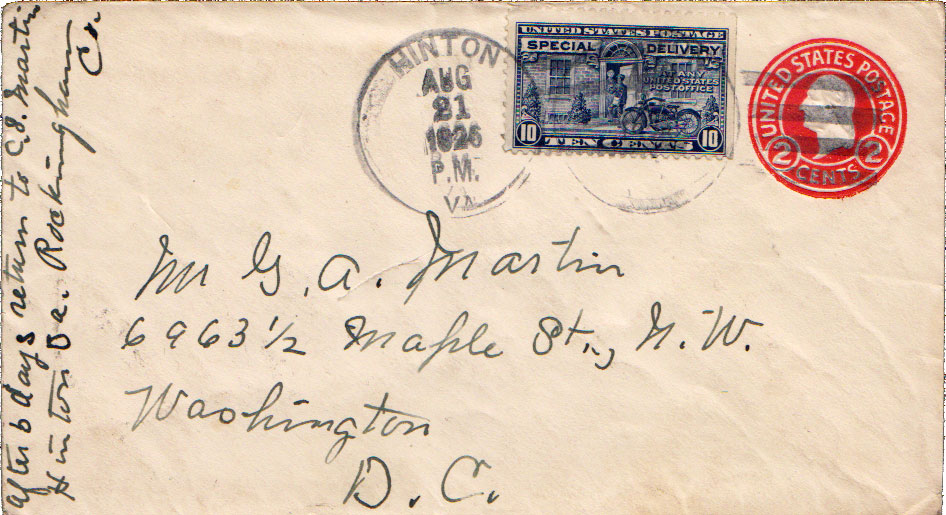 After 6 days return to C.E. Martin
Hinton Va. Rockingham
Co.
HINTON
AUG
21
1926
P.M.
VA
UNITED STATES POSTAGE
SPECIAL DELIVERY
AT ANY
UNITED STATES
POST OFFICE
10 TEN CENTS 10
UNITED STATES POSTAGE
2 CENTS 2
Mr G. A. Martin
6963 1/2 Maple St., N.W.
Washington
D. C.